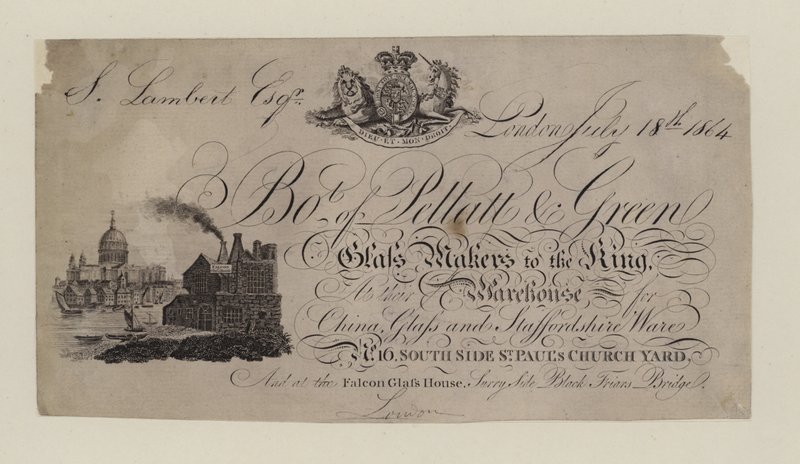 S. Lambert Esqr.
DIEU·ET·MON·DROIT
London July 18th 1864
Bot. of Pellatt & Green
Glaſs Makers to the King,
At their Warehouse for
China, Glaſs and Staffordshire Ware
No. 16, SOUTH SIDE ST. PAULS CHURCH YARD,
And at the Falcon Glaſs House, Surry Side Black Friars Bridge.
London